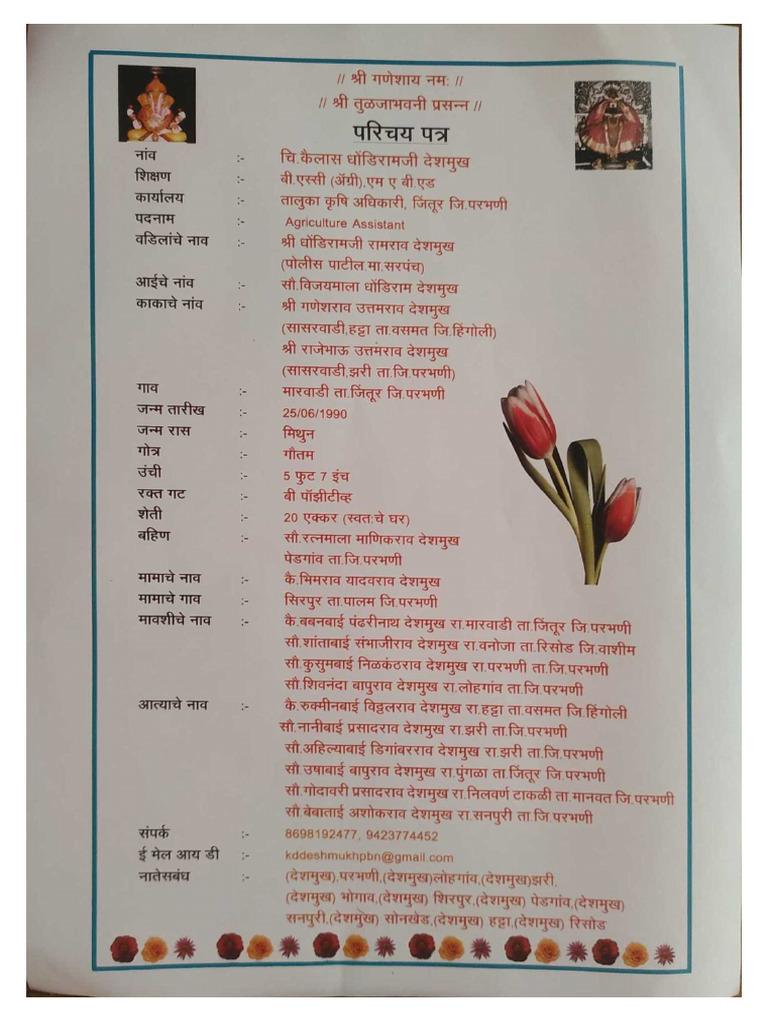 // श्री गणेशाय नम: //
// श्री तुळजाभवनी प्रसन्न //
परिचय पत्र
नांव :- चि.कैलास धोंडिरामजी देशमुख
शिक्षण :- बी.एस्सी (ॲग्री),एम ए बी.एड
कार्यालय :- तालुका कृषि अधिकारी, जिंतूर जि.परभणी
पदनाम :- Agriculture Assistant
वडिलांचे नाव :- श्री धोंडिरामजी रामराव देशमुख
(पोलीस पाटील,मा.सरपंच)
आईचे नांव :- सौ.विजयमाला धोंडिराम देशमुख
काकाचे नांव :- श्री गणेशराव उत्तमराव देशमुख
(सासरवाडी,हट्टा ता.वसमत जि.हिंगोली)
श्री राजेभाऊ उत्तमराव देशमुख
(सासरवाडी,झरी ता.जि.परभणी)
गाव :- मारवाडी ता.जिंतूर जि.परभणी
जन्म तारीख :- 25/06/1990
जन्म रास :- मिथुन
गोत्र :- गौतम
उंची :- 5 फुट 7 इंच
रक्त गट :- बी पॉझीटीव्ह
शेती :- 20 एक्कर (स्वत:चे घर)
बहिण :- सौ.रत्नमाला माणिकराव देशमुख
पेडगांव ता.जि.परभणी
मामाचे नाव :- कै.भिमराव यादवराव देशमुख
मामाचे गाव :- सिरपुर ता.पालम जि.परभणी
मावशीचे नाव :- कै.बबनबाई पंढरीनाथ देशमुख रा.मारवाडी ता.जिंतूर जि.परभणी
सौ.शांताबाई संभाजीराव देशमुख रा.वनोजा ता.रिसोड जि.वाशीम
सौ.कुसुमबाई निळकंठराव देशमुख रा.परभणी ता.जि.परभणी
सौ.शिवनंदा बापुराव देशमुख रा.लोहगांव ता.जि.परभणी
आत्याचे नाव :- कै.रुक्मीनबाई विठ्ठलराव देशमुख रा.हट्टा ता.वसमत जि.हिंगोली
सौ.नानीबाई प्रसादराव देशमुख रा.झरी ता.जि.परभणी
सौ.अहिल्याबाई डिगांबरराव देशमुख रा.झरी ता.जि.परभणी
सौ.उषाबाई बापुराव देशमुख रा.पुंगळा ता.जिंतूर जि.परभणी
सौ.गोदावरी प्रसादराव देशमुख रा.निलवर्ण टाकळी ता.मानवत जि.परभणी
सौ.बेबाताई अशोकराव देशमुख रा.सनपुरी ता.जि.परभणी
संपर्क :- 8698192477, 9423774452
ई मेल आय डी :- kddeshmukhpbn@gmail.com
नातेसबंध :- (देशमुख),परभणी,(देशमुख)लोहगांव,(देशमुख)झरी,
(देशमुख) भोगाव,(देशमुख) शिरपुर,(देशमुख) पेडगांव,(देशमुख)
सनपुरी,(देशमुख) सोनखेड,(देशमुख) हट्टा,(देशमुख) रिसोड